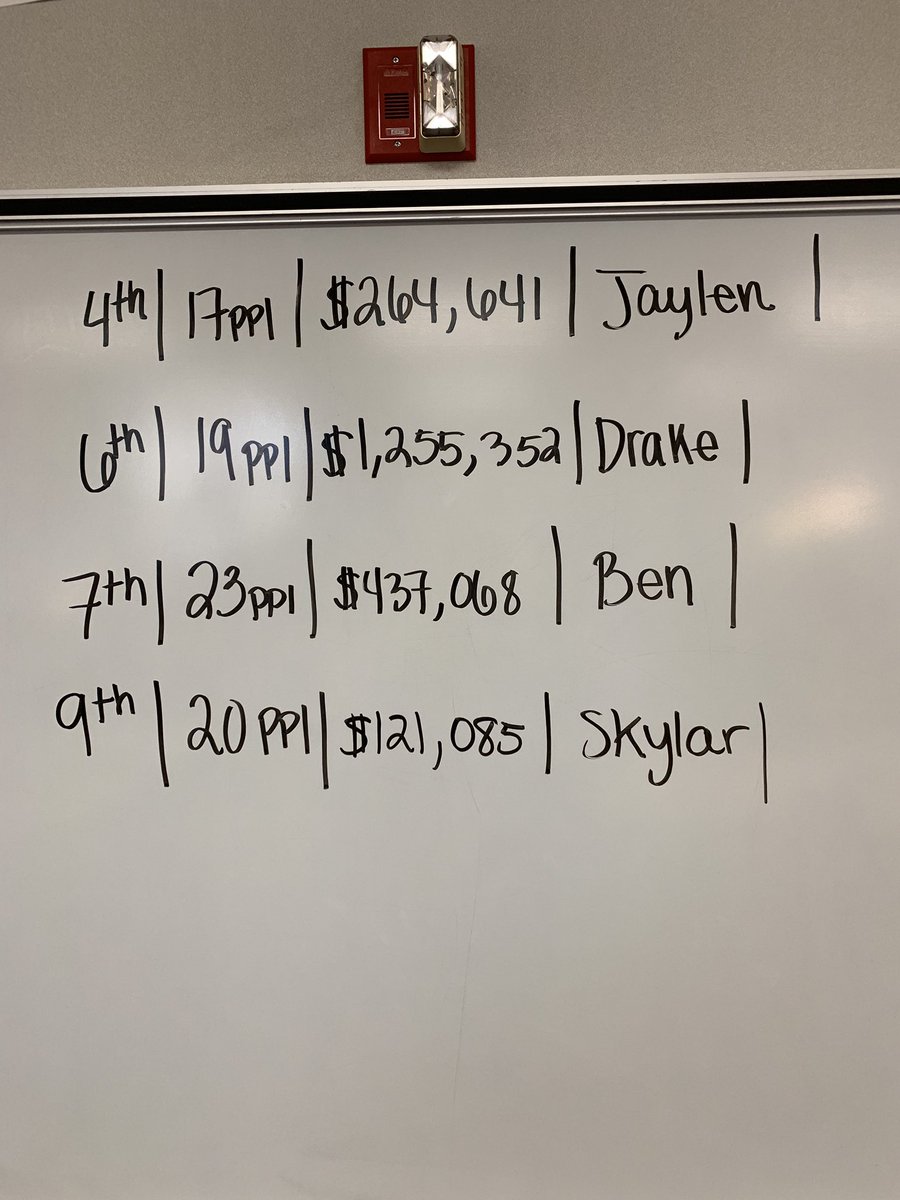 4th | 17ppl | $264,641 | Jaylen |
6th | 19ppl | $1,255,352 | Drake |
7th | 23ppl | $437,068 | Ben |
9th | 20ppl | $121,085 | Skylar |